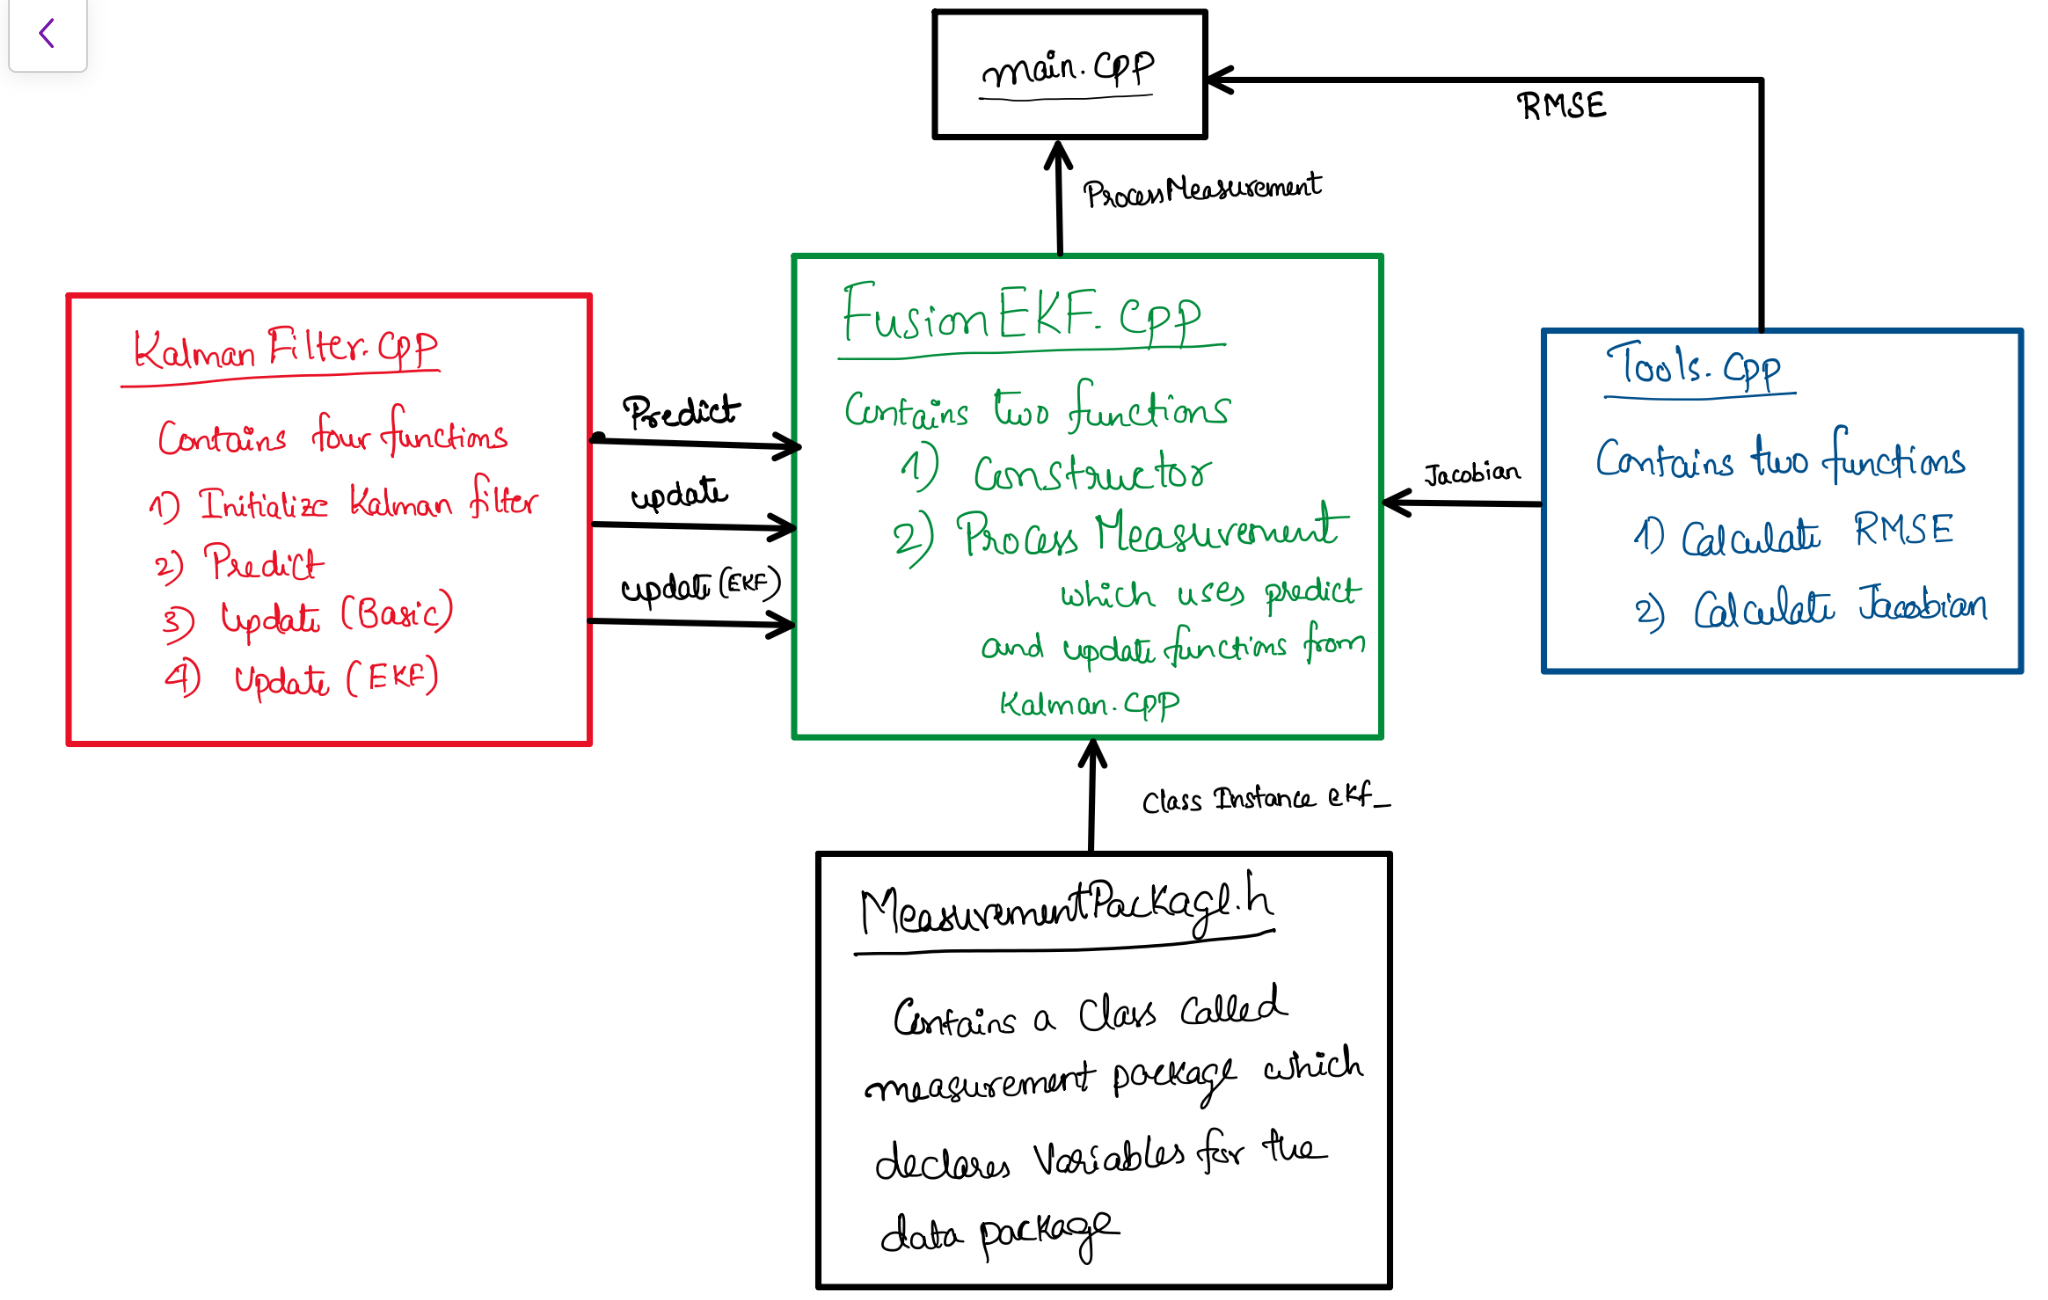 main.cpp
RMSE
ProcessMeasurement
Kalman Filter.cpp
Contains four functions
1) Initialize Kalman filter
2) Predict
3) Update (Basic)
4) Update (EKF)
Predict
update
update (EKF)
FusionEKF.cpp
Contains two functions
1) Constructor
2) Process Measurement
which uses predict
and update functions from
Kalman.cpp
Jacobian
Tools.cpp
Contains two functions
1) Calculate RMSE
2) Calculate Jacobian
Class Instance ekf_
MeasurementPackage.h
Contains a Class Called
measurement package which
declares Variables for the
data package